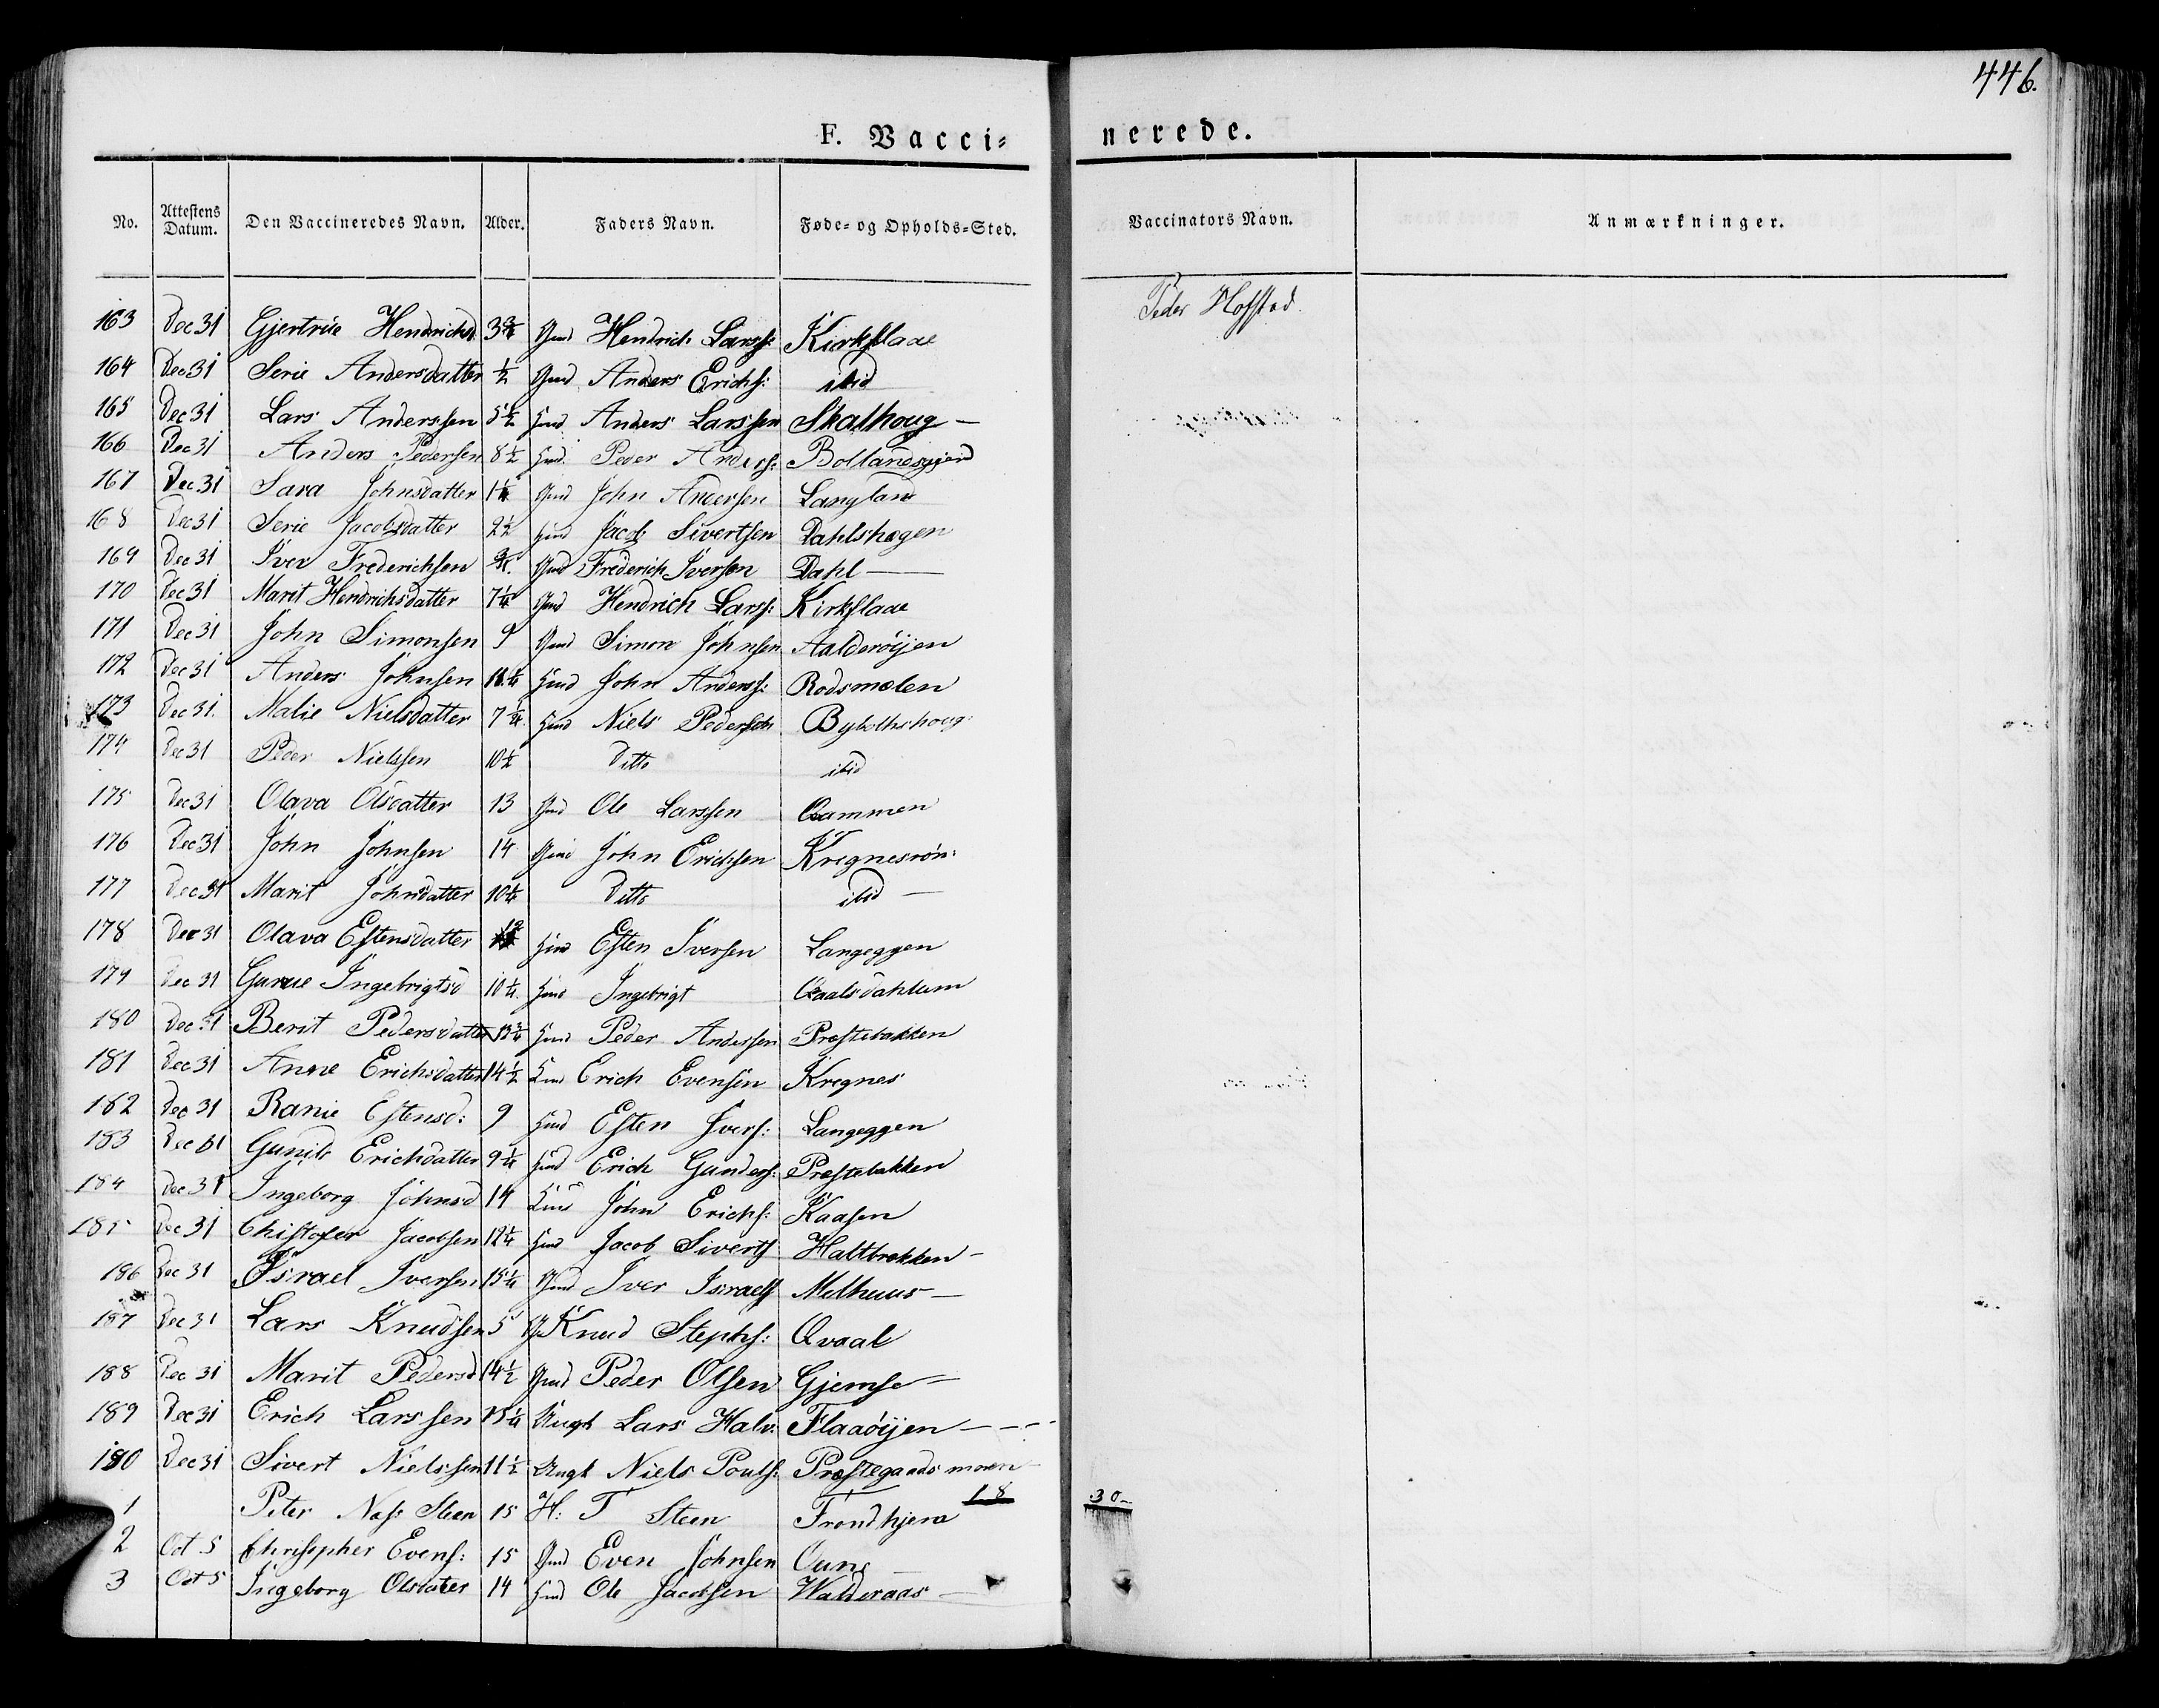 446.
F. Vacci- nerede.
No. Attestens Datum. Den Vaccineredes Navn. Alder. Faders Navn. Føde- og Opholds-Sted. Vaccinators Navn. Anmærkninger.
163 Dec 31 Gjertrue Hendrichs 3 3/4 Gmd Hendrich Larss: Kirkflaae Peder Hofstad.
164 Dec 31 Serie Andersdatter 1/2 Gmd Anders Erichs: ibid
165 Dec 31 Lars Anderssen 5 1/2 Hmd Anders Larssen Skalhoug
166 Dec 31 Anders Pedersen 8 1/2 Hmd Peder Anders: Bollandsgjerd
167 Dec 31 Sara Johnsdatter 1 1/4 Gmd John Andersen Langland
168 Dec 31 Serie Jacobsdatter 2 1/2 Hmd Jacob Sivertsen Dahlshagen
169 Dec 31 Iver Frederichsen 3/4. Gmd Frederich Iversen Dahl
170 Dec 31 Marit Hendrichsdatter 7 1/4 Gmd Hendrich Larss: Kirkflaae
171 Dec 31 John Simonsen 9 Gmd Simon Johnsen Aalderøijen
172 Dec 31 Anders Johnsen 11 1/4 Hmd John Anderss: Rodsmælen
173 Dec 31. Malie Nielsdatter 7 3/4 Hmd Niels Pedersen
174 Dec 31 Peder Nielssen 10 1/2 Ditto ibid
175 Dec 31 Olava Olsdatter 13 Gmd Ole Larssen Qvammen
176 Dec 31 John Johnsen 14 Gmd John Erichsen Kregnesrön:
177 Dec 31 Marit Johnsdatter 10 1/4 Ditto ibid
178 Dec 31 Olava Estensdatter 12 Hmd Esten Iversen Langeggen
179 Dec 31 Gurue Ingebrigtsd 10 1/4. Hmd Ingebrigt Qvaalsdahlum
180 Dec 31 Berit Pedersdatter 13 3/4 Hmd Peder Andersen Præstebakken
181 Dec 31 Anne Erichsdatter 14 1/2 Lmd Erich Evensen Kregnes
182 Dec 31 Ranie Estensd: 9 Hmd Esten Ivers: Langeggen
183 Dec 31 Gunild Erichdatter 9 1/4 Hmd Erich Gunders: Præstebakken
184 Dec 31 Ingeborg Johnsd 14 Lmd John Erichs: Kaasen
185 Dec 31 Chistofer Jacobsen 12 1/4 Hmd Jacob Siverts Haltbrekken
186 Dec 31 Israel Iversen 15 1/4 Gmd Iver Israels Melhuus
187 Dec 31 Lars Knudsen 5 G Knud Stephs: Qvaal
188 Dec 31 Marit Pedersd 14 1/2 Gmd Peder Olsen Gjemse
189 Dec 31 Erich Larssen 15 1/4 Ungk Lars Halv: Flaaøijen
190 Dec 31 Sivert Nielssen 11 1/2 Ungk Niels Pouls: Præstegaards moen
1 Peter Nas: Steen 15 H: T Steen Trondhjem 18 30
2 Oct 5 Christopher Evens: 15 Gmd Even Johnsen Øune
3 Oct 5 Ingeborg Olsdater 14 Hmd Ole Jacobsen Walderaas